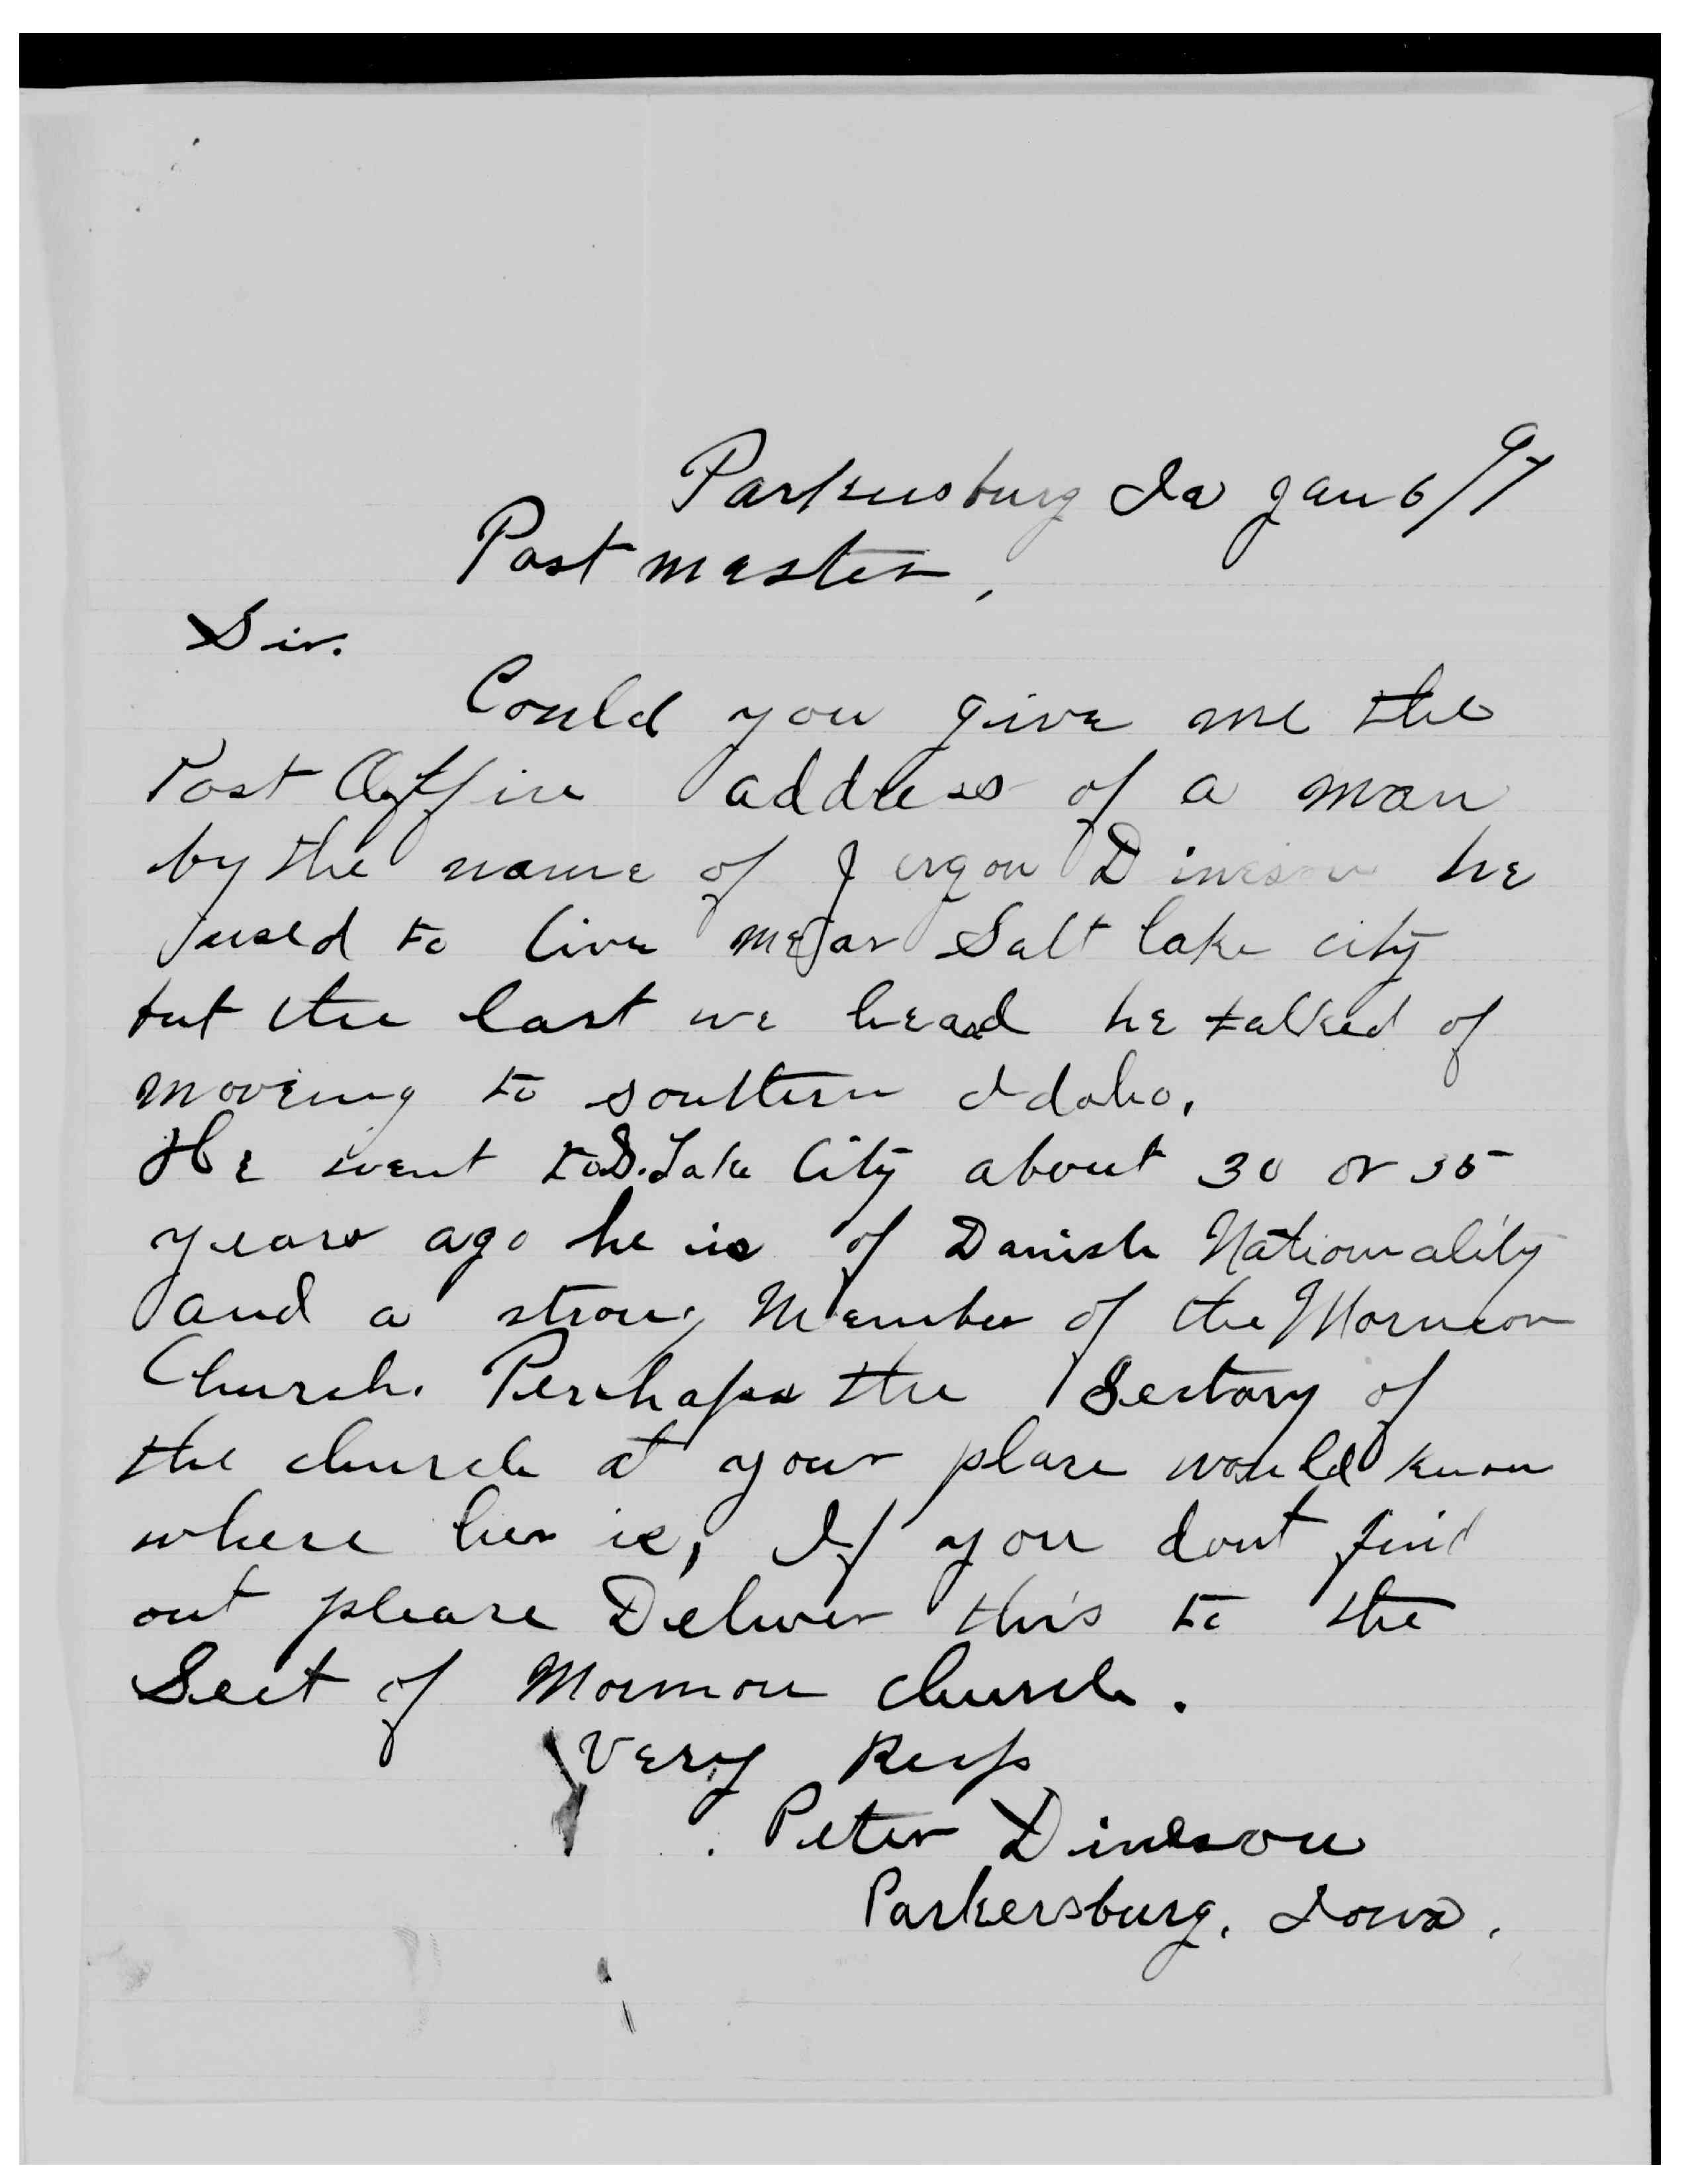 Parkersburg Ia Jan 6/97
Post master,
Sir.
Could you give me the
Post Office address of a man
by the name of Jergon Dineson he
used to live near Salt lake city
but the last we heard he talked of
moveing to southern Idaho.
He went to S. Lake City about 30 or 35
years ago he is of Danish Nationality
and a strong Member of the Mormon
Church. Perhaps the Sectary of
the church at your place would know
where he is, If you dont find
out please Deliver this to the
Sect of Mormon church.
Very Resp
Peter Dineson
Parkersburg, Iowa.